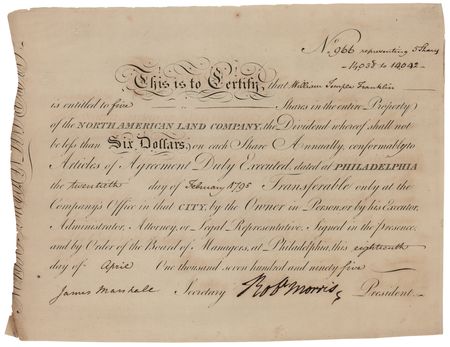 No. 966 representing 5 Shares
14038 to 14042
This is to Certify, that William Temple Franklin
is entitled to five Shares in the entire Property
of the NORTH AMERICAN LAND COMPANY, the Dividend whereof shall not
be less than Six Dollars, on each Share Annually, conformably to
Articles of Agreement Duly Executed, dated at PHILADELPHIA
the twentieth day of February 1795 Transferable only at the
Company's Office in that CITY, by the Owner in Person, or by his Executor,
Administrator, Attorney, or Legal Representative. Signed in the Presence
and by Order of the Board of Managers, at Philadelphia, this eighteenth
day of April One thousand seven hundred and ninety five
James Marshall Secretary Robt Morris President.